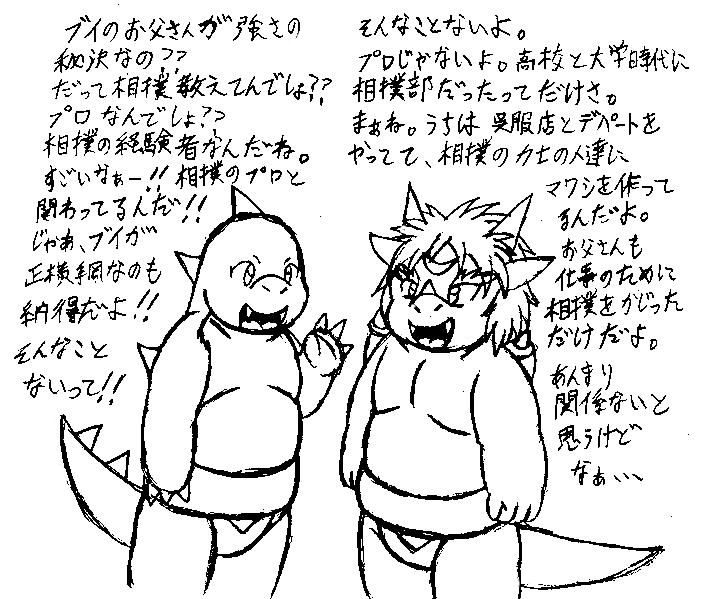 ブイのお父さんが強さの
秘決なの??
だって相撲教えてんでしょ??
プロなんでしょ??
相撲の経験者なんだね。
すごいなぁー!!相撲のプロと
関わってるんだ!!
じゃあ、ブイが
正横綱なのも
納得だよ!!
そんなこと
ないって!!
そんなことないよ。
プロじゃないよ。高校と大学時代に
相撲部だったってだけさ。
まぁね。うちは呉服店とデパートを
やってて、相撲の力士の人達に
マワシを作って
るんだよ。
お父さんも
仕事のために
相撲をかじった
だけだよ。
あんまり
関係ないと
思うけど
なぁ、、、